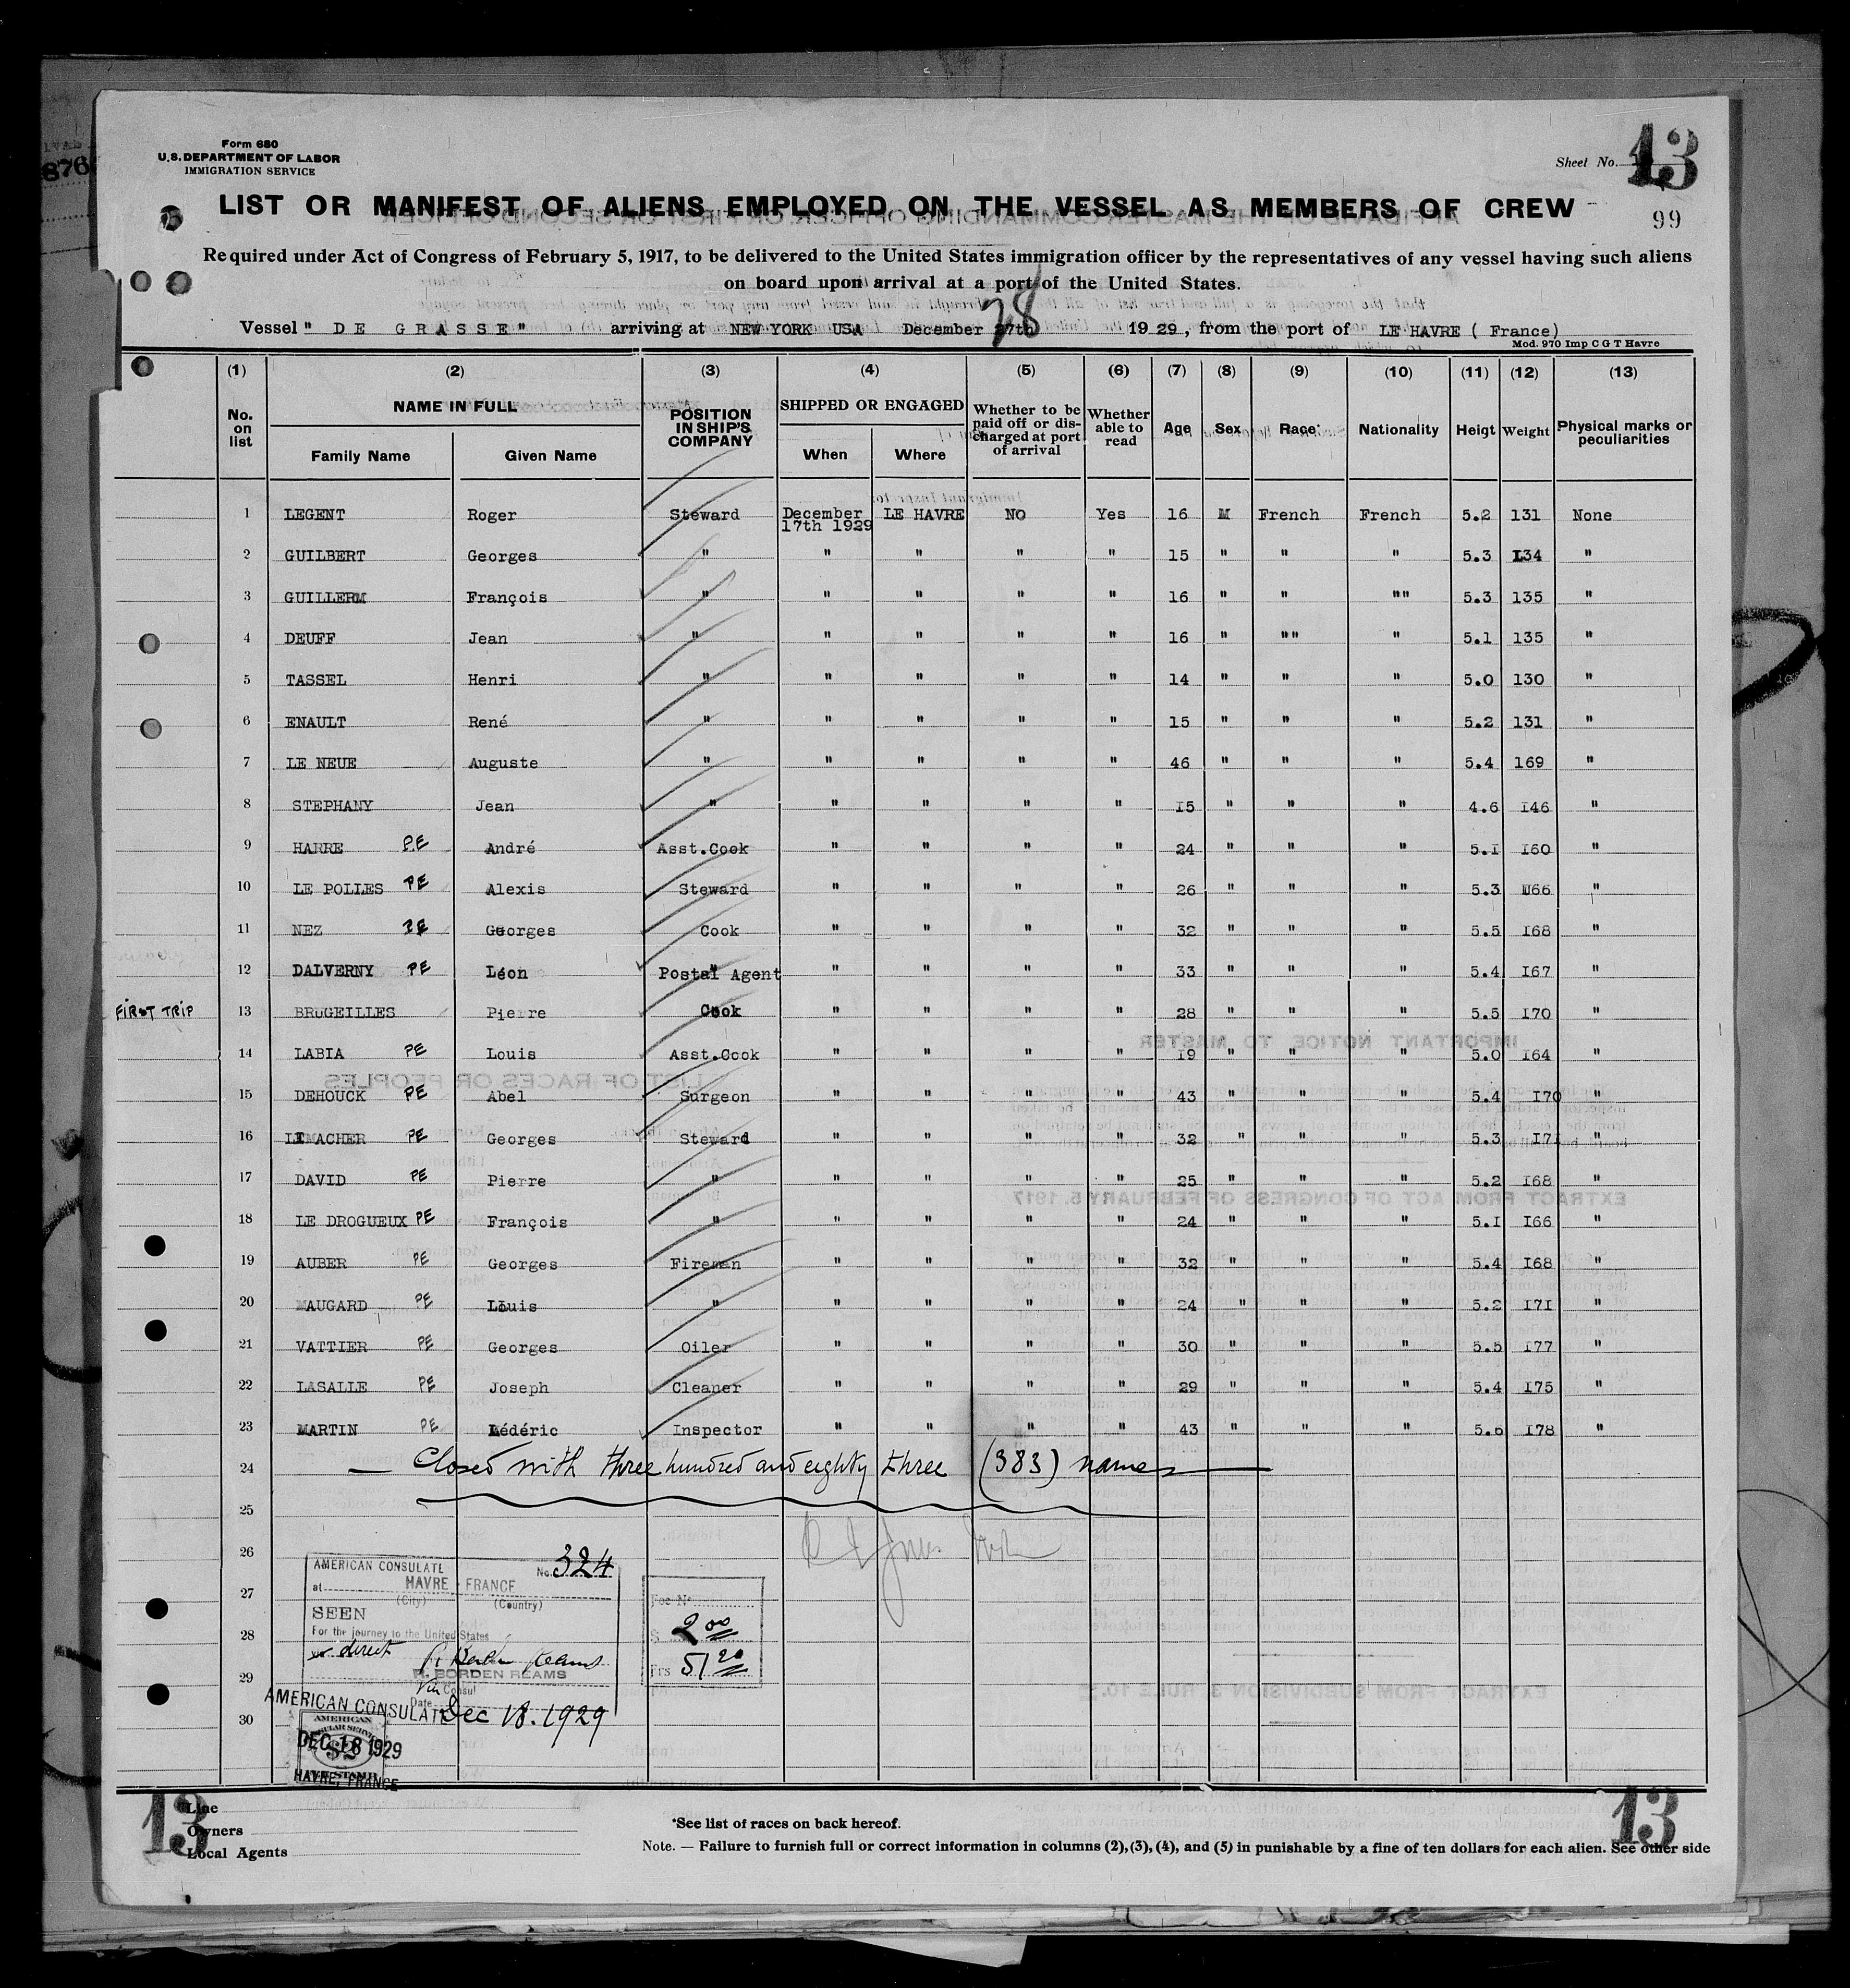 Form 680
U.S. DEPARTMENT OF LABOR
IMMIGRATION SERVICE
Sheet No. 13
LIST OR MANIFEST OF ALIENS EMPLOYED ON THE VESSEL AS MEMBERS OF CREW
99
Required under Act of Congress of February 5, 1917, to be delivered to the United States immigration officer by the representatives of any vessel having such aliens
on board upon arrival at a port of the United States.
Vessel " DE GRASSE" arriving at NEW YORK USA December 27th 28 1929, from the port of LE HAVRE ( France)
Mod. 970 Imp C G T Havre
(1) (2) (3) (4) (5) (6) (7) (8) (9) (10) (11) (12) (13)
No. on list NAME IN FULL Family Name Given Name POSITION IN SHIP'S COMPANY SHIPPED OR ENGAGED When Where Whether to be paid off or discharged at port of arrival Whether able to read Age Sex Race* Nationality Heigt Weight Physical marks or peculiarities
1 LEGENT Roger Steward December 17th 1929 LE HAVRE NO Yes 16 M French French 5.2 131 None
2 GUILBERT Georges " " " " " 15 " " " 5.3 134 "
3 GUILLERM François " " " " " 16 " " "" 5.3 135 "
4 DEUFF Jean " " " " " 16 " "" " 5.1 135 "
5 TASSEL Henri " " " " " 14 " " " 5.0 130 "
6 ENAULT René " " " " " 15 " " " 5.2 131 "
7 LE NEUE Auguste " " " " " 46 " " " 5.4 169 "
8 STEPHANY Jean " " " " " I5 " " " 4.6 I46 "
9 HARRE PE André Asst.Cook " " " " 24 " " " 5.I I60 "
10 LE POLLES PE Alexis Steward " " " " 26 " " " 5.3 I66 "
11 NEZ PE Georges Cook " " " " 32 " " " 5.5 I68 "
12 DALVERNY PE Léon Postal Agent " " " " 33 " " " 5.4 I67 "
FIRST TRIP 13 BRUGEILLES Pierre Cook " " " " 28 " " " 5.5 I70 "
14 LABIA PE Louis Asst.Cook " " " " I9 " " " 5.0 I64 "
15 DEHOUCK PE Abel Surgeon " " " " 43 " " " 5.4 I70 "
16 LEMACHER PE Georges Steward " " " " 32 " " " 5.3 I71 "
17 DAVID PE Pierre " " " " " 25 " " " 5.2 I68 "
18 LE DROGUEUX PE François " " " " " 24 " " " 5.I I66 "
19 AUBER PE Georges Fireman " " " " 32 " " " 5.4 I68 "
20 MAUGARD PE Louis " " " " " 24 " " " 5.2 I7I "
21 VATTIER PE Georges Oiler " " " " 30 " " " 5.5 I77 "
22 LASALLE PE Joseph Cleaner " " " " 29 " " " 5.4 I75 "
23 MARTIN PE Lédéric Inspector " " " " 43 " " " 5.6 I78 "
24 — Closed with three hundred and eighty three (383) names —
25
26
27
28
29
30
AMERICAN CONSULATE No. 324
at HAVRE - FRANCE
(City) (Country)
SEEN
For the journey to the United States
direct
R. BORDEN REAMS
Vice Consul
Date Dec 18. 1929
Fee No
$ 2 00
Frs 51 20
AMERICAN CONSULATE
AMERICAN
CONSULAR SERVICE
$2
FEE STAMP
DEC 18 1929
HAVRE, FRANCE
13
Line
Owners
Local Agents
*See list of races on back hereof.
Note. — Failure to furnish full or correct information in columns (2), (3), (4), and (5) in punishable by a fine of ten dollars for each alien. See other side
13